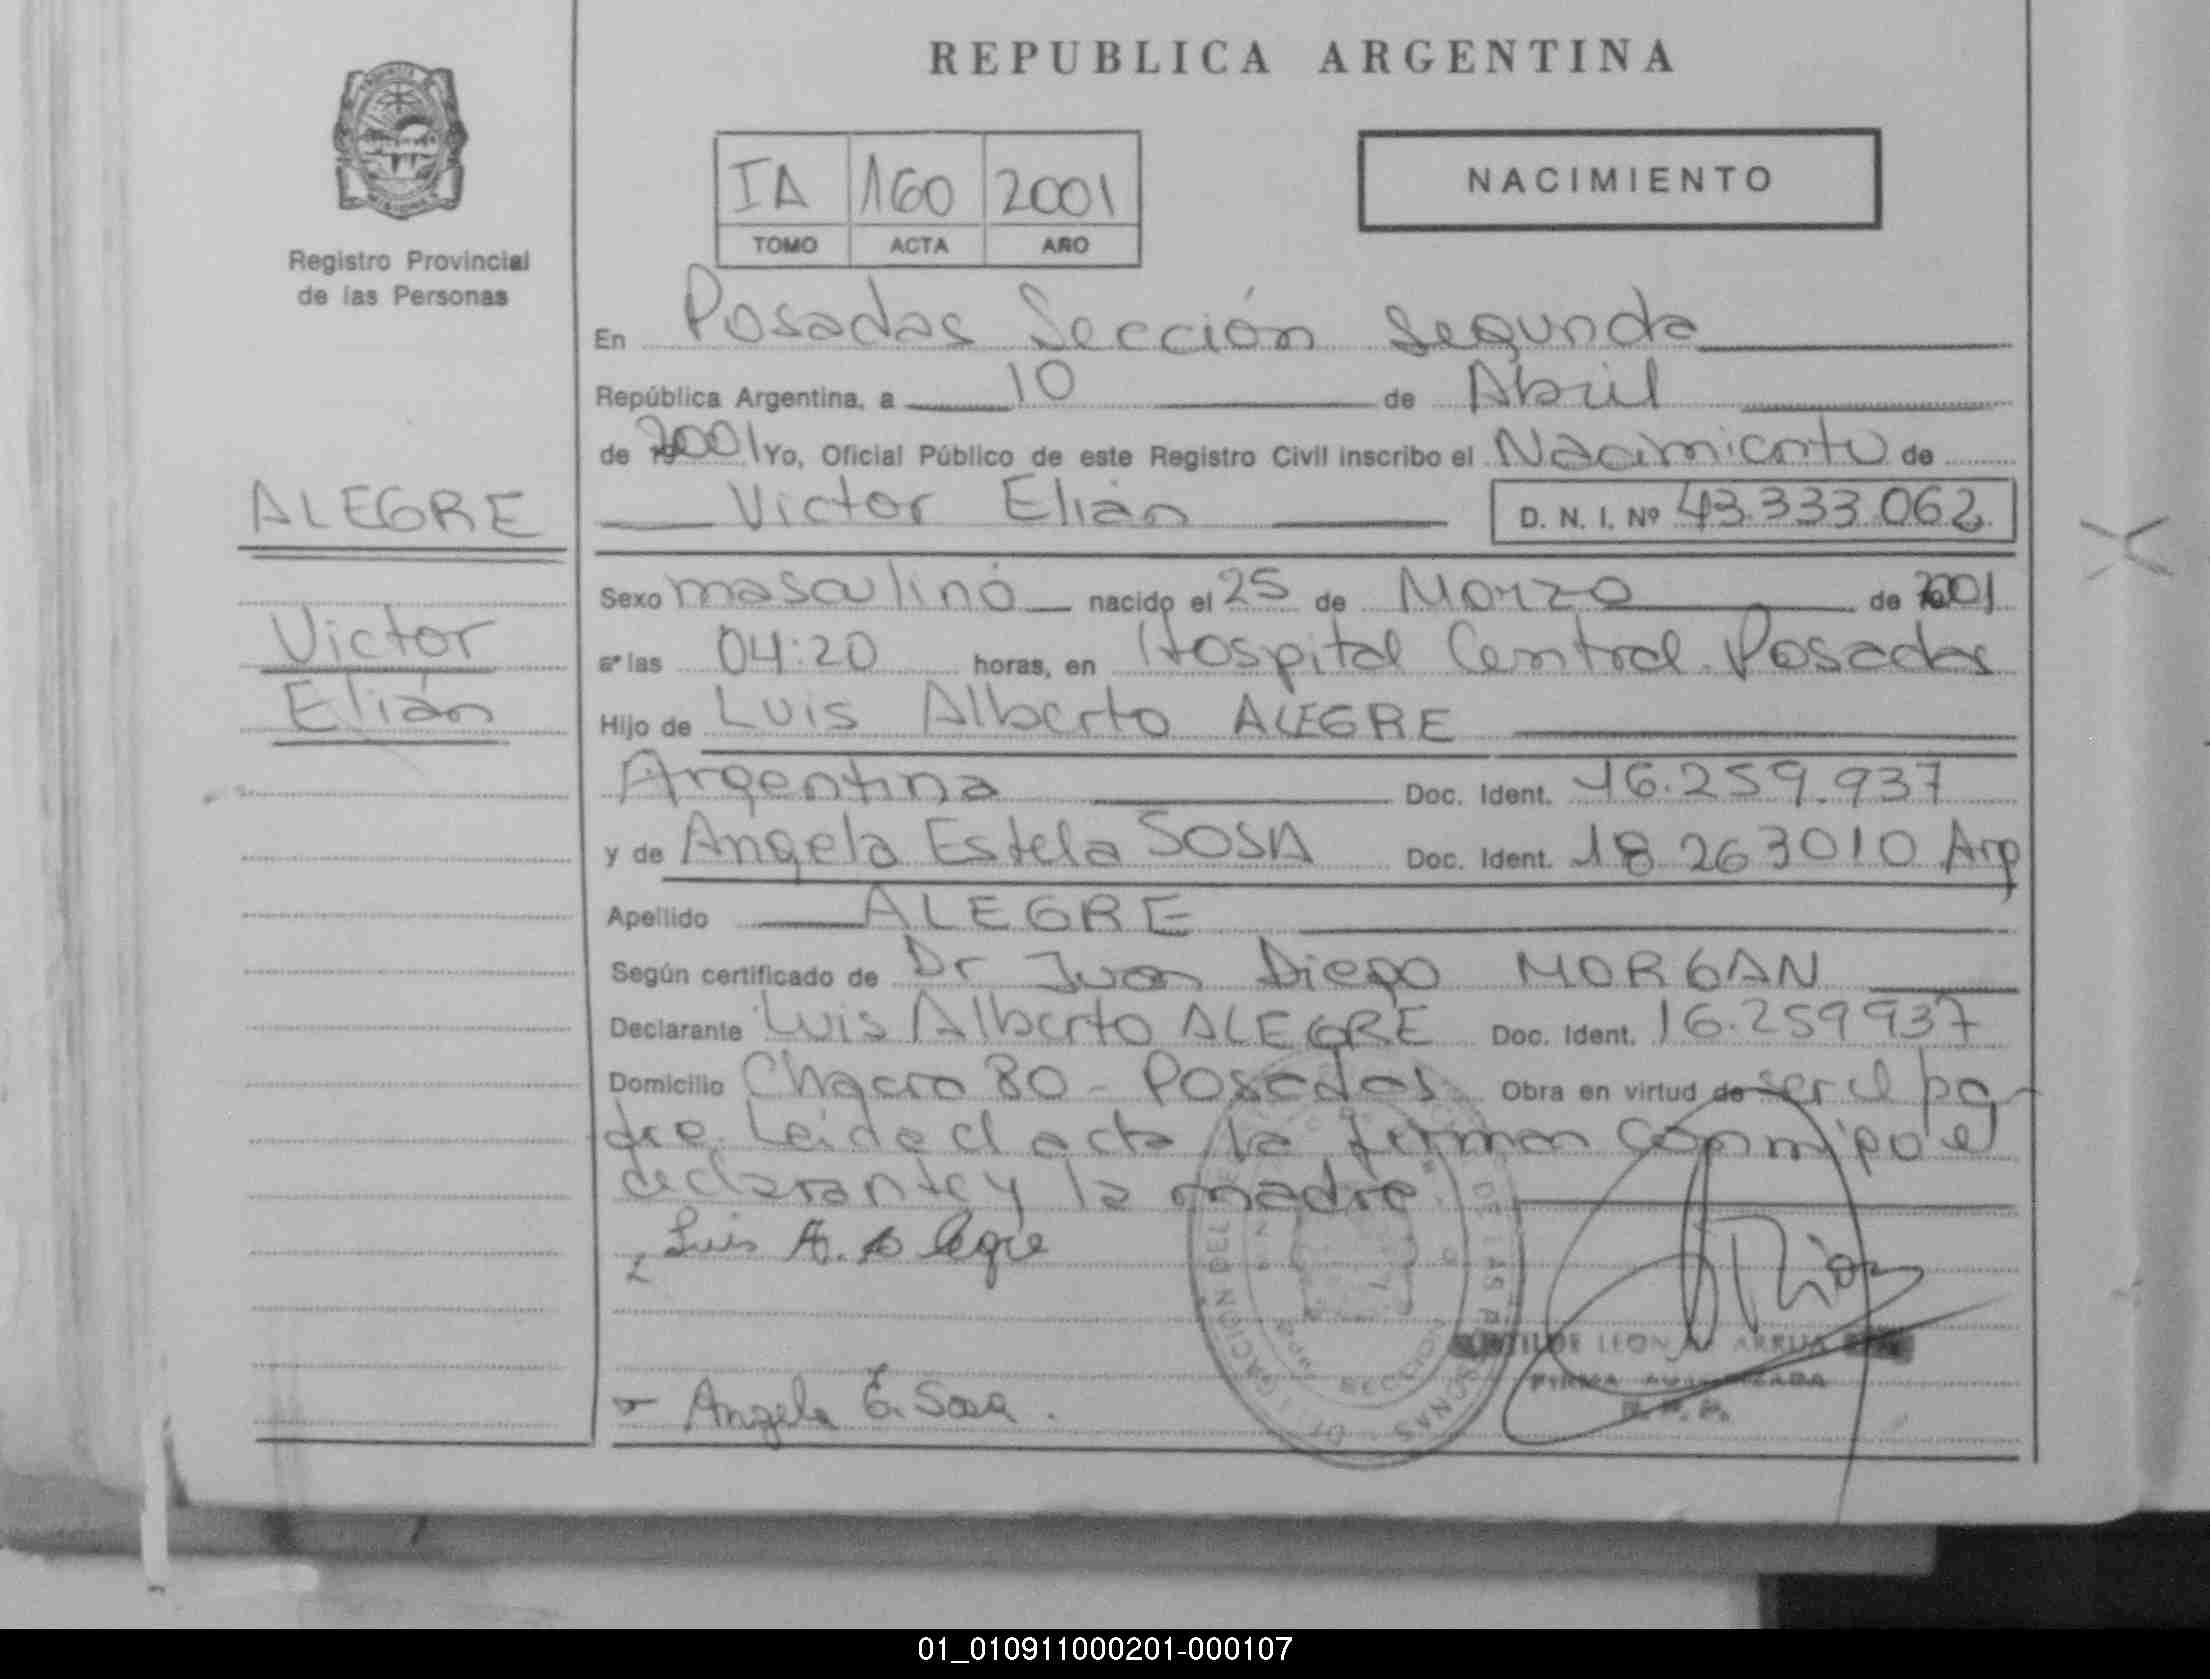 REPUBLICA ARGENTINA
Registro Provincial
de las Personas
IA 160 2001
TOMO ACTA AÑO
NACIMIENTO
En Posadas Sección Segunda
República Argentina, a 10 de Abril
de 2001 Yo, Oficial Público de este Registro Civil inscribo el Nacimiento de
ALEGRE
Victor Elián D. N. I. Nº 43.333.062
Sexo masculino nacido el 25 de Marzo de 2001
Victor
a las 04:20 horas, en Hospital Central Posadas
Elián
Hijo de Luis Alberto ALEGRE
Argentina Doc. Ident. 16.259.937
y de Angela Estela SOSA Doc. Ident. 18 263010 Arg
Apellido ALEGRE
Según certificado de Dr Juan Diego MORGAN
Declarante Luis Alberto ALEGRE Doc. Ident. 16.259937
Domicilio Chacra 80 - Posadas Obra en virtud de ser el pa-
dre. Leida el acta la firman conmigo el
declarante y la madre
Luis A. Alegre
Angela E. Sosa.
DE LAS PERSONAS
SECCION
LEON ARRUA
FIRMA AUTORIZADA
R. P. P.
01_010911000201-000107